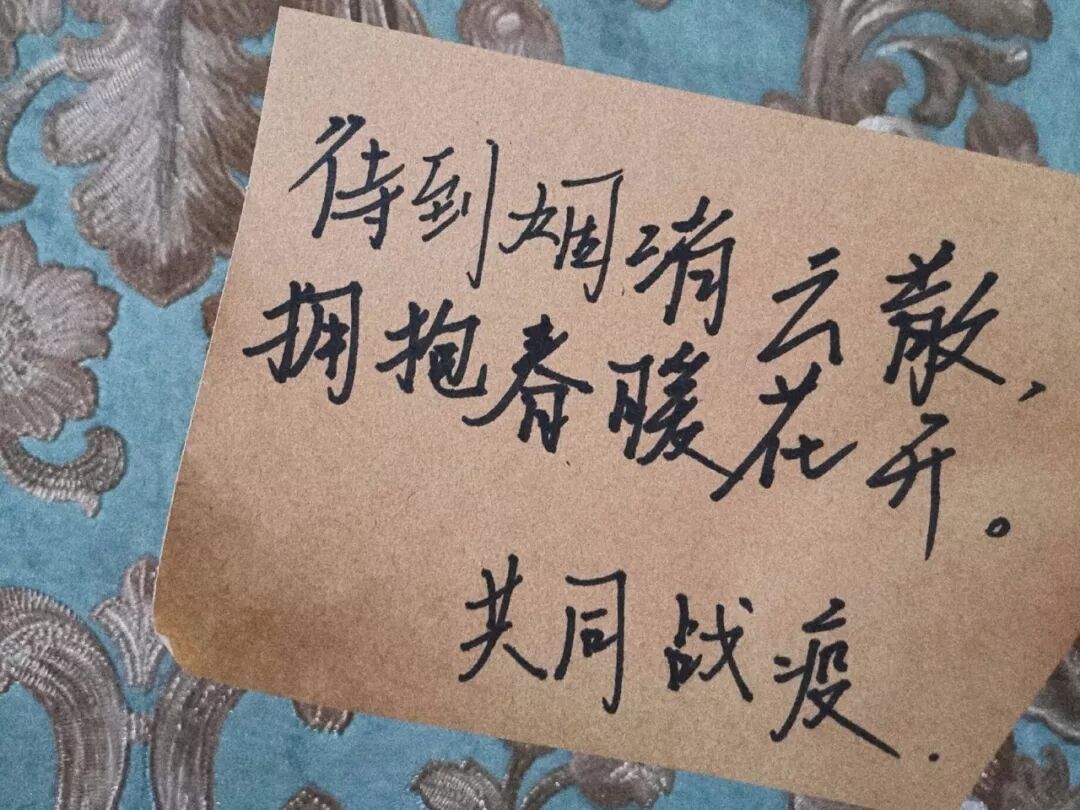 “待到烟消云散，
拥抱春暖花开。
共同战疫.